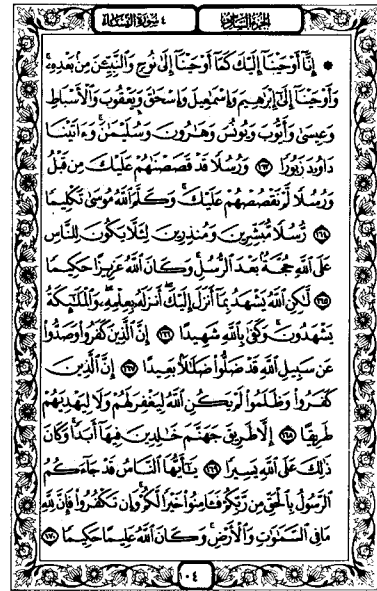 الجزء السادس
٤ سورة النساء
* إِنَّآ أَوْحَيْنَآ إِلَيْكَ كَمَآ أَوْحَيْنَآ إِلَىٰ نُوحٍ وَٱلنَّبِيِّـۧنَ مِنۢ بَعْدِهِۦ
وَأَوْحَيْنَآ إِلَىٰٓ إِبْرَٰهِيمَ وَإِسْمَٰعِيلَ وَإِسْحَٰقَ وَيَعْقُوبَ وَٱلْأَسْبَاطِ
وَعِيسَىٰ وَأَيُّوبَ وَيُونُسَ وَهَٰرُونَ وَسُلَيْمَٰنَ وَءَاتَيْنَا
دَاوُۥدَ زَبُورًا ١٦٣ وَرُسُلًا قَدْ قَصَصْنَٰهُمْ عَلَيْكَ مِن قَبْلُ
وَرُسُلًا لَّمْ نَقْصُصْهُمْ عَلَيْكَ وَكَلَّمَ ٱللَّهُ مُوسَىٰ تَكْلِيمًا
١٦٤ رُّسُلًا مُّبَشِّرِينَ وَمُنذِرِينَ لِئَلَّا يَكُونَ لِلنَّاسِ
عَلَى ٱللَّهِ حُجَّةٌۢ بَعْدَ ٱلرُّسُلِ وَكَانَ ٱللَّهُ عَزِيزًا حَكِيمًا
١٦٥ لَّٰكِنِ ٱللَّهُ يَشْهَدُ بِمَآ أَنزَلَ إِلَيْكَ أَنزَلَهُۥ بِعِلْمِهِۦ وَٱلْمَلَٰٓئِكَةُ
يَشْهَدُونَ وَكَفَىٰ بِٱللَّهِ شَهِيدًا ١٦٦ إِنَّ ٱلَّذِينَ كَفَرُوا۟ وَصَدُّوا۟
عَن سَبِيلِ ٱللَّهِ قَدْ ضَلُّوا۟ ضَلَٰلًۢا بَعِيدًا ١٦٧ إِنَّ ٱلَّذِينَ
كَفَرُوا۟ وَظَلَمُوا۟ لَمْ يَكُنِ ٱللَّهُ لِيَغْفِرَ لَهُمْ وَلَا لِيَهْدِيَهُمْ
طَرِيقًا ١٦٨ إِلَّا طَرِيقَ جَهَنَّمَ خَٰلِدِينَ فِيهَآ أَبَدًا وَكَانَ
ذَٰلِكَ عَلَى ٱللَّهِ يَسِيرًا ١٦٩ يَٰٓأَيُّهَا ٱلنَّاسُ قَدْ جَآءَكُمُ
ٱلرَّسُولُ بِٱلْحَقِّ مِن رَّبِّكُمْ فَـَٔامِنُوا۟ خَيْرًا لَّكُمْ وَإِن تَكْفُرُوا۟ فَإِنَّ لِلَّهِ
مَا فِى ٱلسَّمَٰوَٰتِ وَٱلْأَرْضِ وَكَانَ ٱللَّهُ عَلِيمًا حَكِيمًا ١٧٠
١٠٤